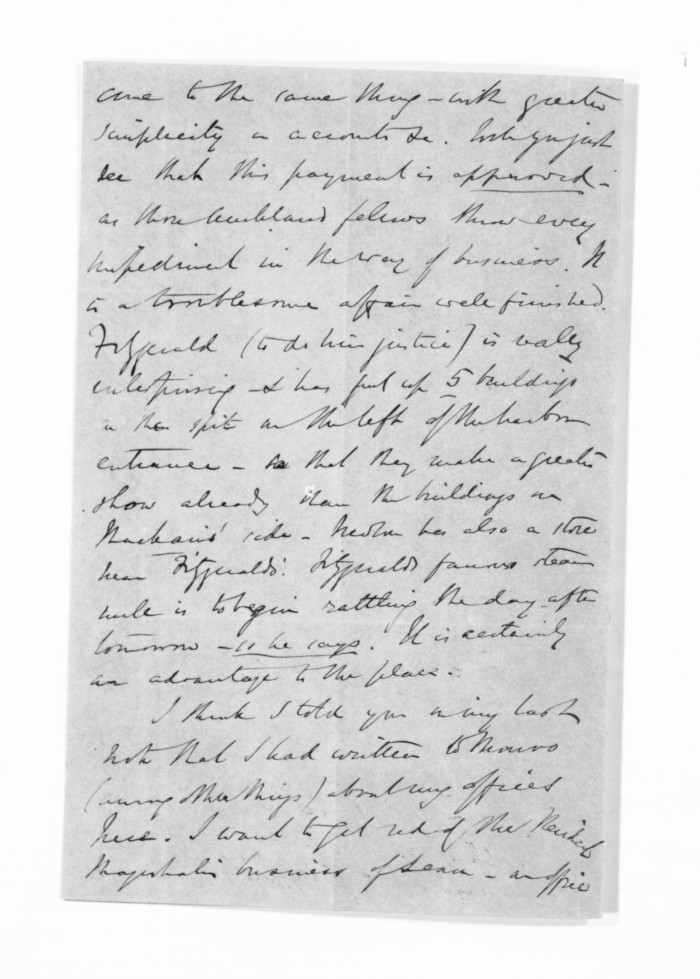 came to the same thing – with greater
simplicity in accounts &c. Will you just
see that this payment is approved –
as those Auckland fellows throw every
impediment in the way of business. It
is a troublesome affair well finished.
Fitzgerald (to do him justice) is really
enterprising – & has put up 5 buildings
on the spit on the left of the harbour
entrance – so that they make a greater
show already than the buildings on
side – Newton has also a store
near Fitzgerald's. Fitzgerald's famous steam
mill is to begin rattling the day after
tomorrow – so he says. It is certainly
an advantage to the place.
I think I told you in my last
note that I had written to Monro
(among other things) about my offices
here. I want to get rid of the Resident
Magistrate's business – an office